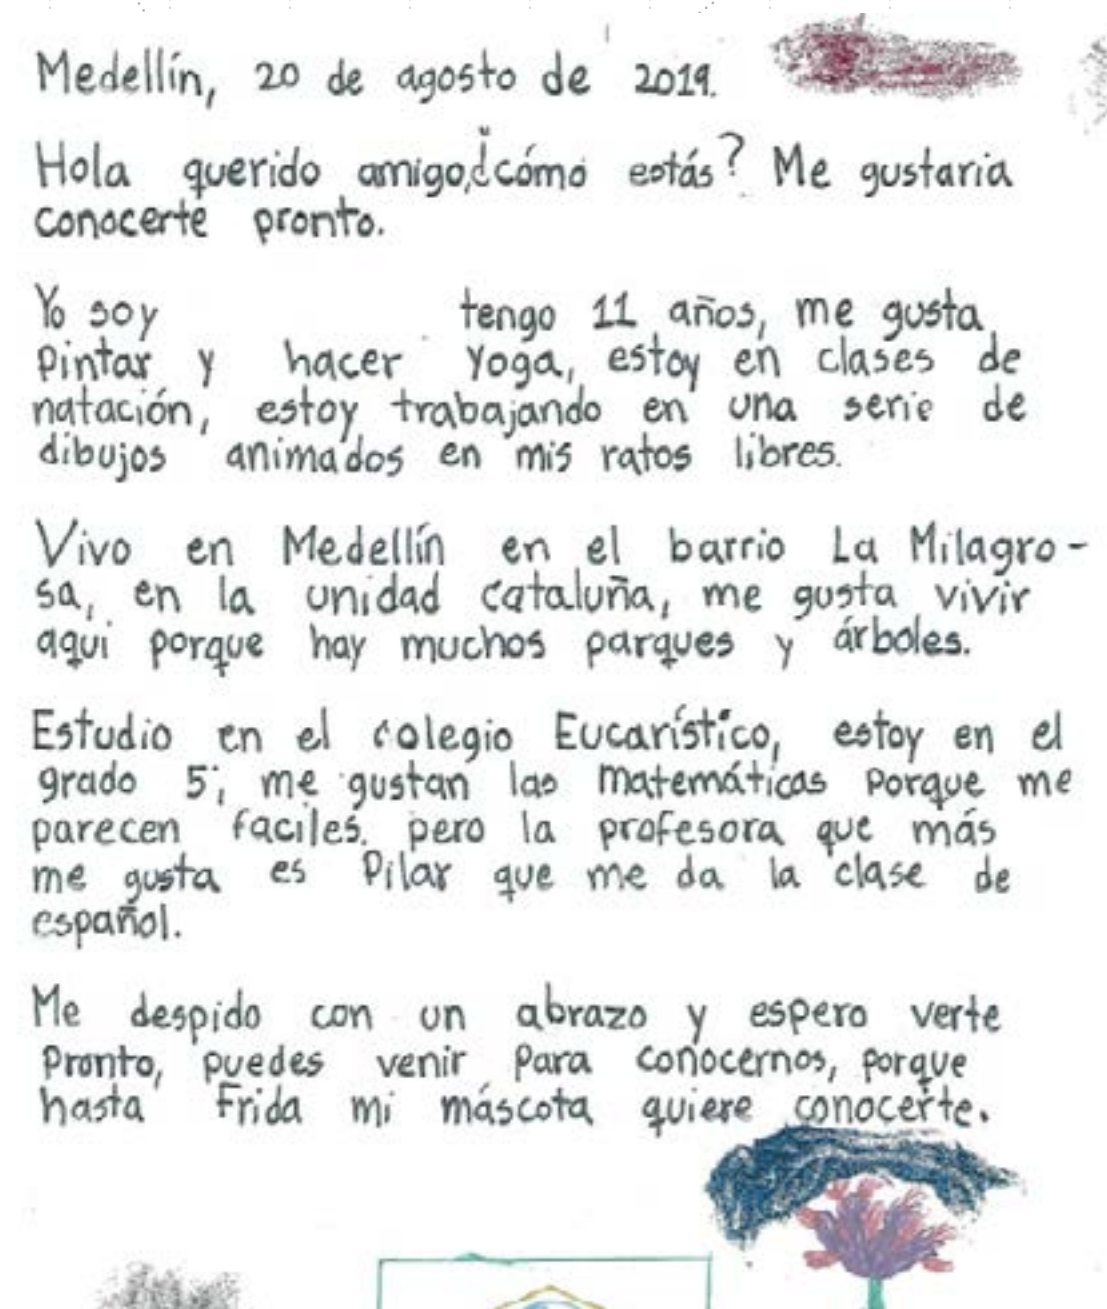 Medellín, 20 de agosto de 2019.
Hola querido amigo,¿cómo estás? Me gustaria
conocerte pronto.
Yo soy tengo 11 años, me gusta
pintar y hacer yoga, estoy en clases de
natación, estoy trabajando en una serie de
dibujos animados en mis ratos libres.
Vivo en Medellín en el barrio La Milagro-
sa, en la unidad Cataluña, me gusta vivir
aqui porque hay muchos parques y árboles.
Estudio en el colegio Eucarístico, estoy en el
grado 5°, me gustan las matemáticas porque me
parecen faciles. pero la profesora que más
me gusta es Pilar que me da la clase de
español.
Me despido con un abrazo y espero verte
Pronto, puedes venir para conocernos, porque
hasta Frida mi máscota quiere conocerte.